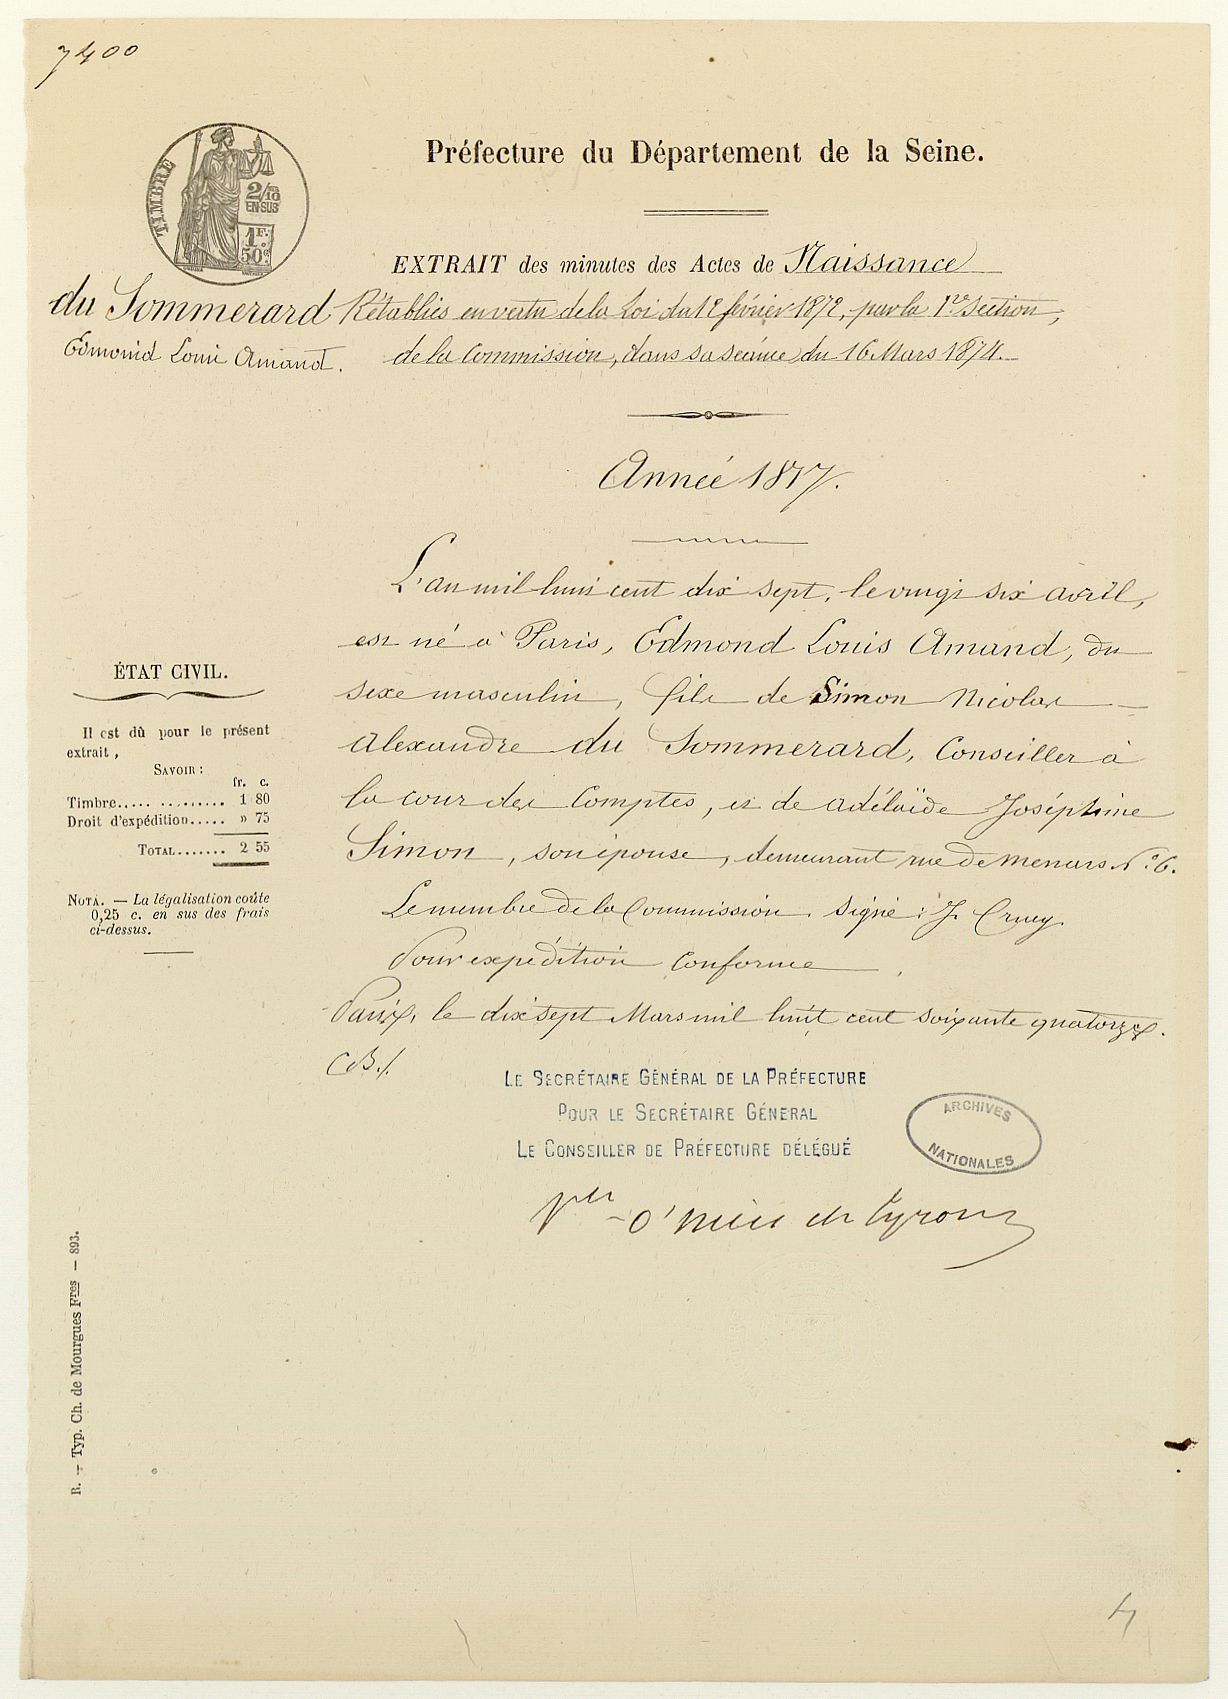 7400
TIMBRE
2/10
EN SUS
1 F.
50 c
Préfecture du Département de la Seine.
EXTRAIT des minutes des Actes de Naissance
du Sommerard
Edmond Louis Amand.
Rétablis en vertu de la Loi du 12 février 1872, par la 1re section,
de la Commission, dans sa séance du 16 Mars 1874.
Année 1817.
L'an mil huit cent dix sept, le vingt six avril,
est né à Paris, Edmond Louis Amand, du
sexe masculin, fils de Simon Nicolas
Alexandre du Sommerard, Conseiller à
la cour des Comptes, et de Adélaïde Joséphine
Simon, son épouse, demeurant rue de Menars No. 6.
Le membre de la Commission signé : J. Cruey
Pour expédition conforme
Paris, le dix sept Mars mil huit cent soixante quatorze.
CB./.
ÉTAT CIVIL.
Il est dû pour le présent
extrait,
SAVOIR :
fr. c.
Timbre..... ......... 1 80
Droit d'expédition..... » 75
TOTAL....... 2 55
NOTA. — La légalisation coûte
0,25 c. en sus des frais
ci-dessus.
LE SECRÉTAIRE GÉNÉRAL DE LA PRÉFECTURE
POUR LE SECRÉTAIRE GÉNÉRAL
LE CONSEILLER DE PRÉFECTURE DÉLÉGUÉ
ARCHIVES
NATIONALES
R. — Typ. Ch. de Mourgues Fres — 893.
4